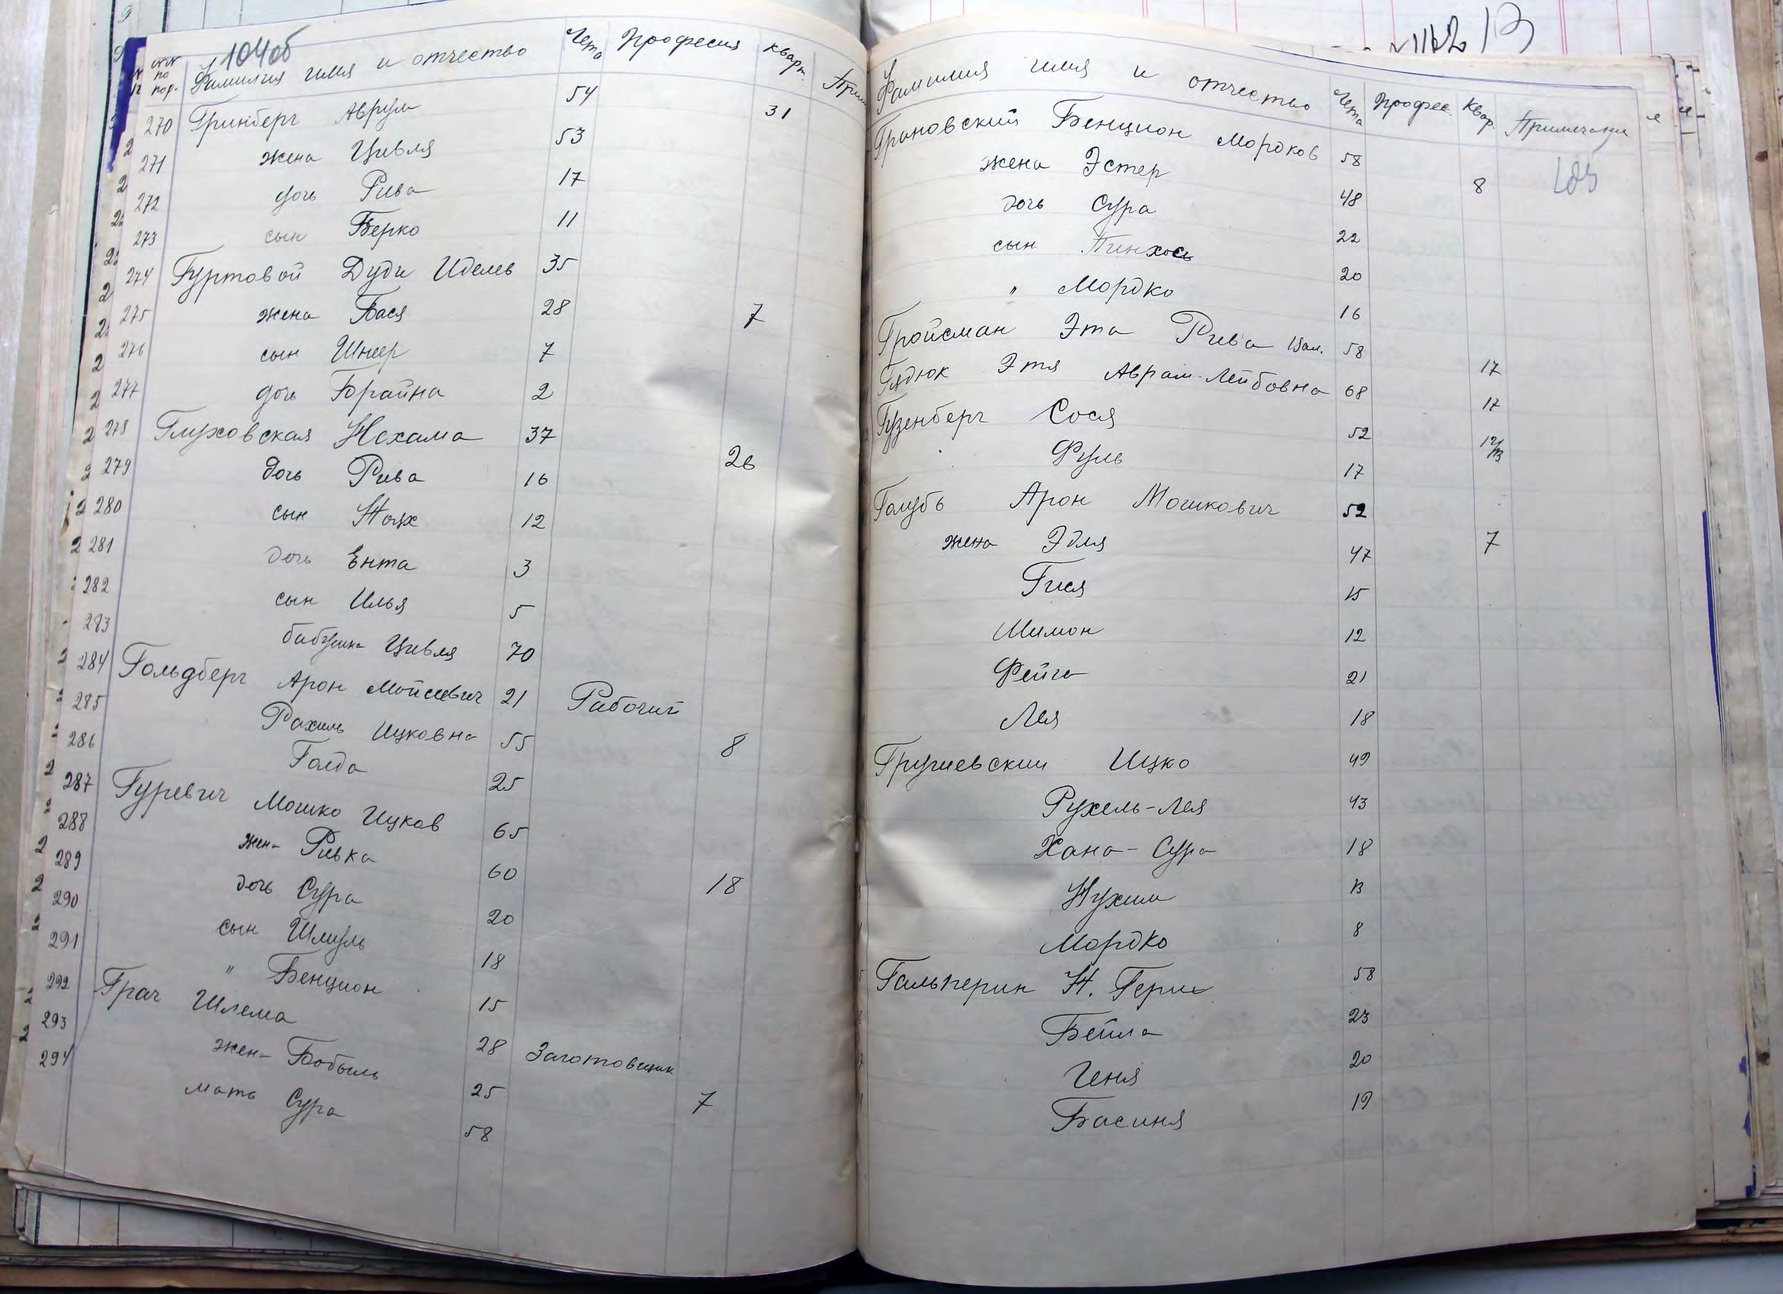 104об
№№ по пор. Фамилия имя и отчество Лета Професия кварт. Прим
270 Гринберг Аврум 54 31
271 жена Цивля 53
272 дочь Рива 17
273 сын Берко 11
274 Гуртовой Дуди Иделев 35
275 жена Бася 28 7
276 сын Шнеер 7
277 дочь Брайна 2
278 Глуховская Нехама 37
279 дочь Рива 16 26
280 сын Ноух 12
281 дочь Ента 3
282 сын Илья 5
283 бабушка Цивля 70
284 Гольдберг Арон Мойсеевич 21 Рабочий
285 Рахиль Ицковна 55 8
286 Голда 25
287 Гуревич Мошко Ицков 65
288 жена Ривка 60
289 дочь Сура 20 18
290 сын Шмуль 18
291 " Бенцион 15
292 Грач Шлема 28 Заготовщик
293 жена Бобыль 25
294 мать Сура 58 7
Фамилия имя и отчество Лета Профес. Квар. Примечания
Грановский Бенцион Мордков 58
105
жена Эстер 48 8
дочь Сура 22
сын Пинхос 20
" Мордко 16
Гройсман Эта Рива 58 17
Гудюк Этя Аврам-Лейбовна 68 17
Гузенберг Сося 52 12/13
Фуль 17
Голубь Арон Мошкович 52
жена Эдля 47 7
Гися 15
Шимон 12
Фейга 21
Лея 18
Грушевский Ицко 49
Рухель-Лея 43
Хана-Сура 18
Нухим 13
Мордко 8
Гальперин Н. Герш 58
Бейла 23
Геня 20
Басиня 19